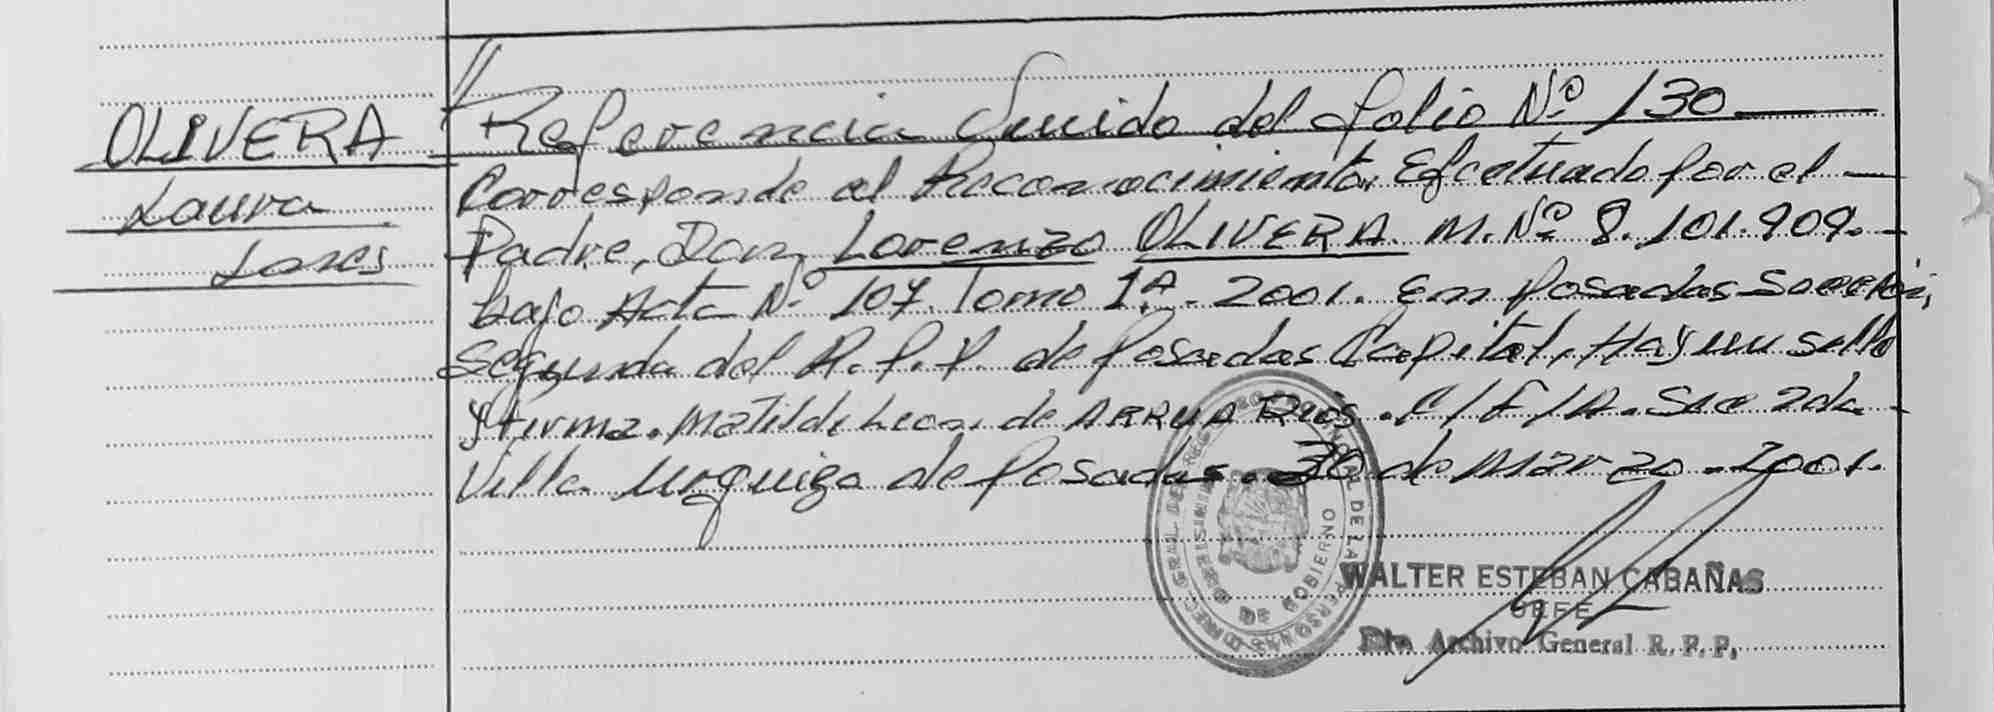 OLIVERA
Laura
Lores
// Referencia Suuido del folio Nº 130
Corresponde al Reconocimiento. Efcetuado por el
Padre, Don, Lorenzo OLIVERA. M. Nº 8.101.909.
bajo Acta Nº 107 Tomo 1º. 2001. En Posadas Sección,
Segunda del R.P.P. de Posadas Capital, Hay un sello
y firma. Matilde Leon. de ARRUA Rios. E/F/A. Sec 2da
Villa Urquiza de Posadas. 30 de Marzo. 2001.
WALTER ESTEBAN CABAÑAS
JEFE
Div. Archivo General R. P. P.